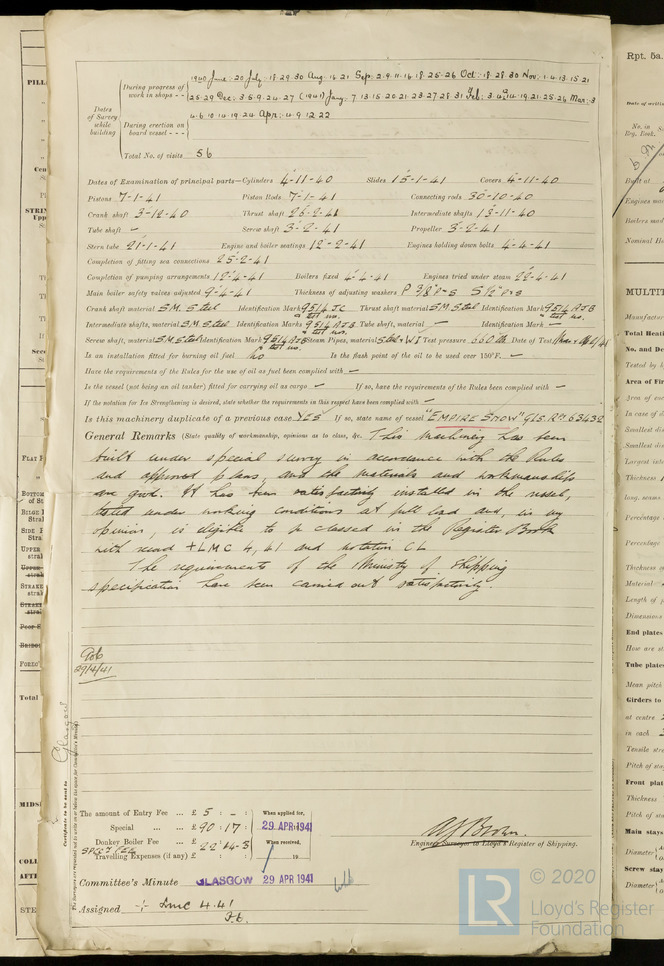 1940 June: 20 July: 18 29 30 Aug: 16 21 Sep: 2 9 11 16 18 25 26 Oct: 18 28 30 Nov: 1 4 13 15 21
During progress of work in shops - - 25 29 Dec: 3 5 9 24 27 (1941) Jany: 7 13 15 20 21 23 27 28 31 Feb: 3 4 14 19 21 25 26 Mar: 3
Dates of Survey while building
During erection on board vessel - - - 4 6 10 14 19 24 Apr: 4 9 12 22
Total No. of visits 56
Dates of Examination of principal parts—Cylinders 4-11-40 Slides 15-1-41 Covers 4-11-40
Pistons 7-1-41 Piston Rods 7-1-41 Connecting rods 30-10-40
Crank shaft 3-12-40 Thrust shaft 26-2-41 Intermediate shafts 13-11-40
Tube shaft – Screw shaft 3-2-41 Propeller 3-2-41
Stern tube 21-1-41 Engine and boiler seatings 12-2-41 Engines holding down bolts 4-4-41
Completion of fitting sea connections 25-2-41
Completion of pumping arrangements 12-4-41 Boilers fixed 4-4-41 Engines tried under steam 22-4-41
Main boiler safety valves adjusted 9-4-41 Thickness of adjusting washers
Crank shaft material S.M. Steel Identification Mark 9514 JC & test no. Thrust shaft material S.M. Steel Identification Mark 9514 AJB & test no.
Intermediate shafts, material S.M. Steel Identification Marks 9514 AJB & test nos. Tube shaft, material – Identification Mark –
Screw shaft, material S.M. Steel Identification Mark 9514 AJB & test no. Steam Pipes, material Steel & W.I. Test pressure 660 lb Date of Test
Is an installation fitted for burning oil fuel No Is the flash point of the oil to be used over 150°F. –
Have the requirements of the Rules for the use of oil as fuel been complied with –
Is the vessel (not being an oil tanker) fitted for carrying oil as cargo – If so, have the requirements of the Rules been complied with –
If the notation for Ice Strengthening is desired, state whether the requirements in this respect have been complied with –
Is this machinery duplicate of a previous case YES If so, state name of vessel "EMPIRE SNOW" GLS. Rpt. 63432
General Remarks (State quality of workmanship, opinions as to class, &c. This Machinery has been
built under special survey in accordance with the Rules
and approved plans, and the materials and workmanship
are good. It has been satisfactorily installed in the vessel,
tested under working conditions at full load and, in my
opinion, is eligible to be classed in the Register Book
with record +LMC 4,41 and notation CL
The requirements of the Ministry of Shipping
specification have been carried out satisfactorily.
29/4/41
Glasgow
Certificate to be sent to
The amount of Entry Fee ... £ 5 : - : When applied for,
Special ... ... £ 90 : 17 : 29 APR 1941
Donkey Boiler Fee ... £ 22 : 14 : 3 When received,
SPECN FEE
Travelling Expenses (if any) £ : : 19
A J Brown.
Engineer Surveyor to Lloyd's Register of Shipping.
Committee's Minute GLASGOW 29 APR 1941
Assigned + LMC 4.41
© 2020
LR
Lloyd's Register
Foundation
Rpt. 5a.
Date of writing
No. in
Reg. Book.
Built at
Engines made
Boilers made
Nominal Ho
MULTIT
Manufactur
Total Heati
No. and De
Tested by h
Area of Fir
Area of eac
In case of d
Smallest dis
Smallest dis
Largest inte
Thickness
long. seams
Percentage
Percentage
Thickness o
Material
Length of p
Dimensions
End plates
How are st
Tube plates
Mean pitch
Girders to
at centre 2
in each
Tensile stre
Pitch of sta
Front plat
Thickness
Pitch of sta
Main stays
Diameter
Screw stay
Diameter